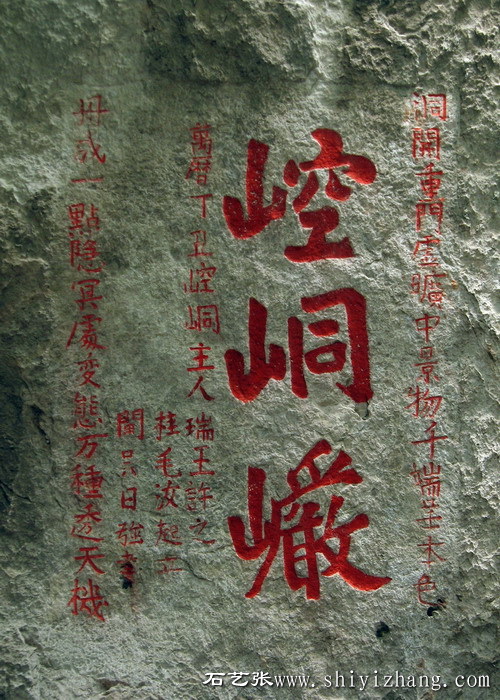 洞開重門虛曠中景物千端呈本色
崆峒巖
萬曆丁丑崆峒主人
瑞王許之
桂毛汝起立
閣只日強
毋或一點隐冥處变態万種透天機
石艺张www.shiyizhang.com